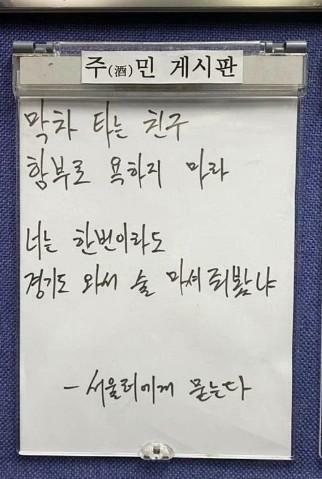 주(酒)민 게시판
막차 타는 친구
함부로 욕하지 마라
너는 한번이라도
경기도 와서 술 마셔줘봤냐
- 서울러에게 묻는다